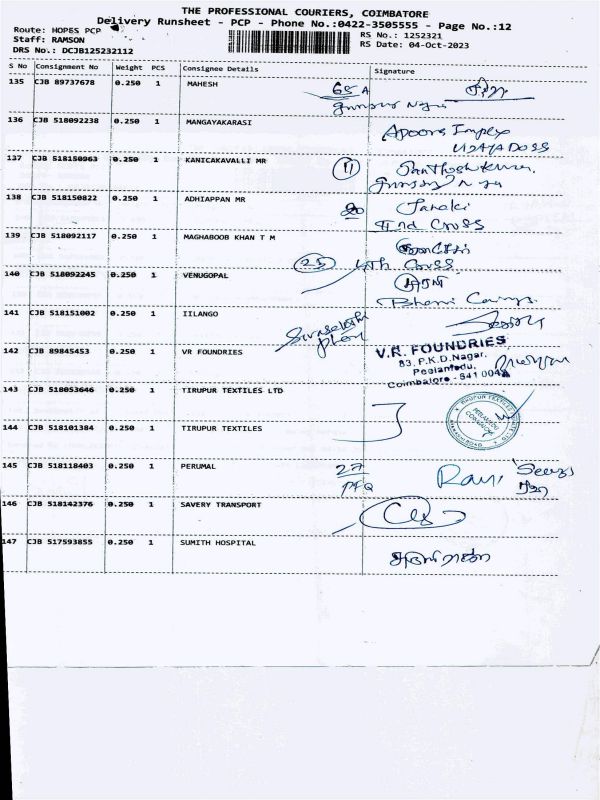 THE PROFESSIONAL COURIERS, COIMBATORE
Delivery Runsheet - PCP - Phone No.:0422-3505555 - Page No.:12
Route: HOPES PCP
RS No.: 1252321
Staff: RAMSON
RS Date: 04-Oct-2023
DRS No.: DCJB125232112
S No Consignment No Weight PCS Consignee Details Signature
135 CJB 89737678 0.250 1 MAHESH 65 A
136 CJB 518092238 0.250 1 MANGAYAKARASI
Apoorva Impex
VIJAYADOSS
137 CJB 518150963 0.250 1 KANICAKAVALLI MR 11 Santhoshkumar
138 CJB 518150822 0.250 1 ADHIAPPAN MR Janaki
IInd Cross
139 CJB 518092117 0.250 1 MAGHABOOB KHAN T M
25 4th Cross
140 CJB 518092245 0.250 1 VENUGOPAL
141 CJB 518151002 0.250 1 IILANGO
142 CJB 89845453 0.250 1 VR FOUNDRIES
V.R. FOUNDRIES
83, P.K.D.Nagar,
Peelamedu,
Coimbatore - 641 004
143 CJB 518053646 0.250 1 TIRUPUR TEXTILES LTD
144 CJB 518101384 0.250 1 TIRUPUR TEXTILES
145 CJB 518118403 0.250 1 PERUMAL 27 Ravi
146 CJB 518142376 0.250 1 SAVERY TRANSPORT
147 CJB 517593855 0.250 1 SUMITH HOSPITAL